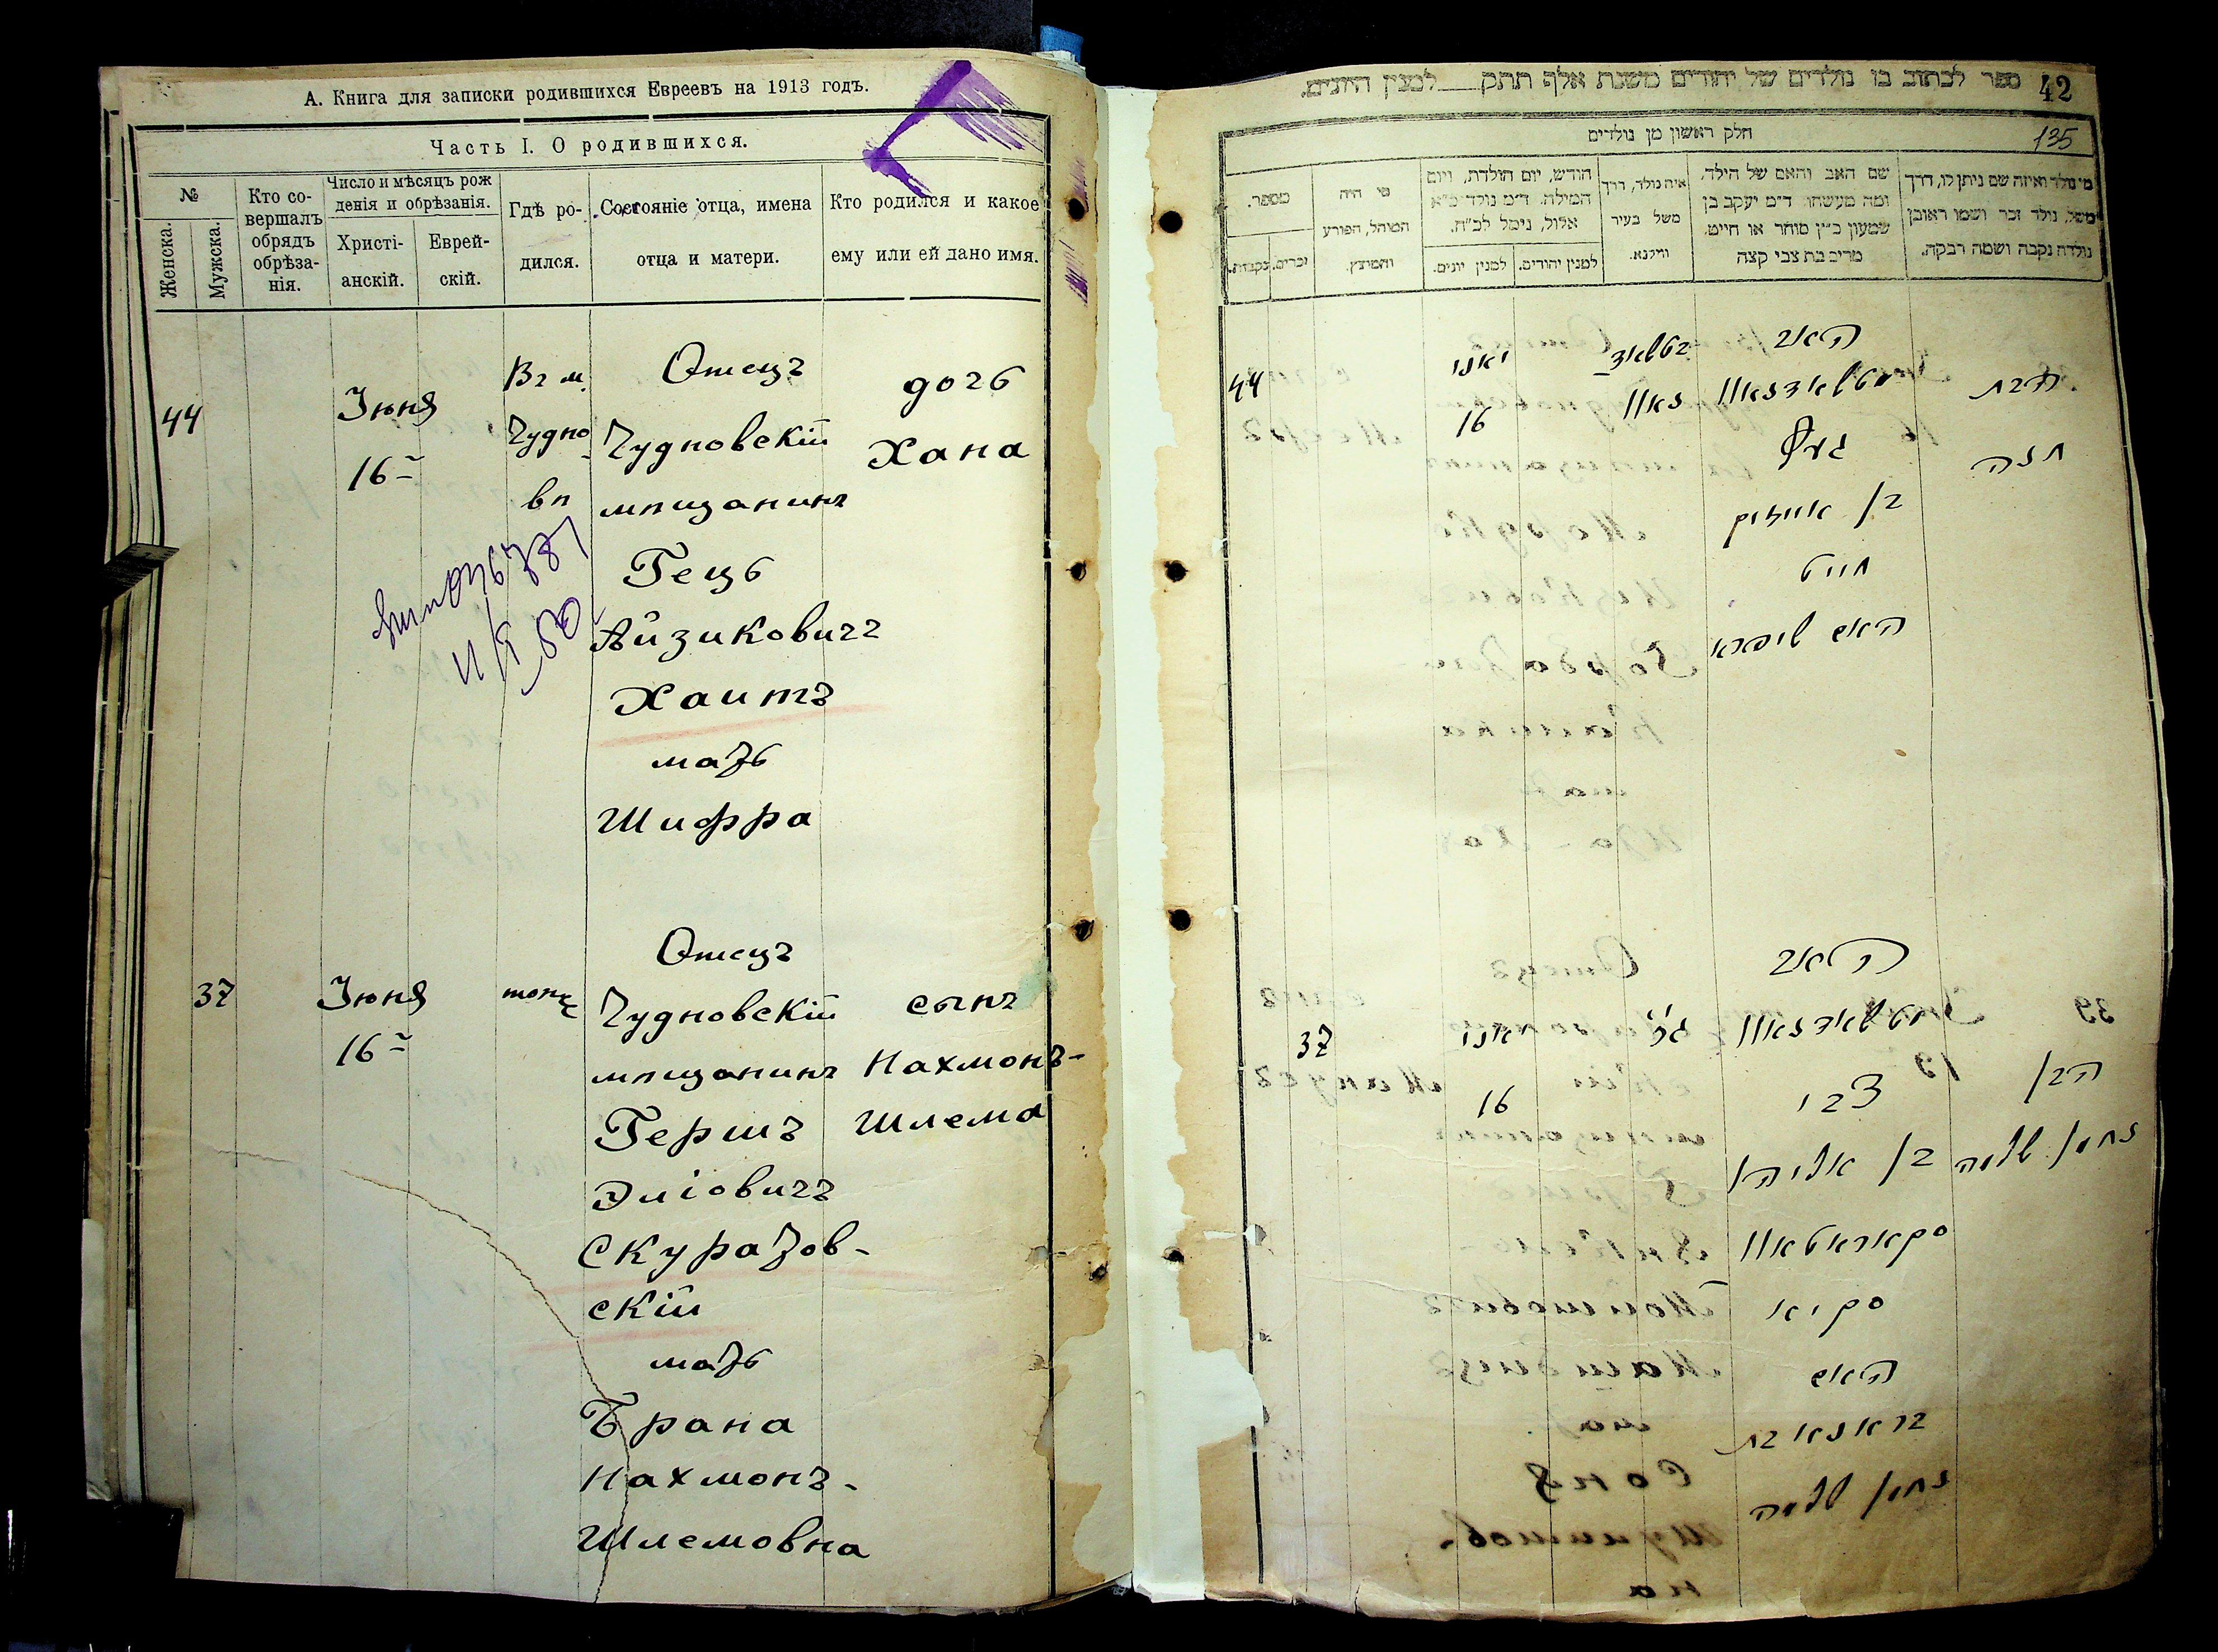 А. Книга для записки родившихся Евреевъ на 1913 годъ.
Часть I. О родившихся.
№
Женска.
Мужска.
Кто со-
вершалъ
обрядъ
обрѣза-
нія.
Число и мѣсяцъ рож
денія и обрѣзанія.
Христі-
анскій.
Еврей-
скій.
Гдѣ ро-
дился.
Состояніе отца, имена
отца и матери.
Кто родился и какое
ему или ей дано имя.
44
Іюня
16
Въ м.
Чудно
вѣ
Отецъ
Чудновскій
мѣщанинъ
Гецъ
Айзиковичъ
Хаитъ
мать
Шифра
дочь
Хана
37
Іюня
16
тоже
Отецъ
Чудновскій
мѣщанинъ
Гершъ
Эліовичъ
Скуратов-
скій
мать
Брана
Нахмонъ-
Шлемовна
сынъ
Нахмонъ-
Шлема
ספר לכתוב בו נולדים של יהודים משנת אלף תתק למנין היונים.
42
חלק ראשון מן נולדים
135
מי נולד ואיזה שם ניתן לו, דרך
משל, נולד זכר ושמו ראובן
נולדה נקבה ושמה רבקה.
שם האב והאם של הילד,
ומה מעשהו ד״מ יעקב בן
שמעון כ״ץ סוחר או חייט,
מרים בת צבי קצה
איה נולד, דרך
משל בעיר
ווילנא.
חודש, יום הולדת, ויום
המילה, ד״מ נולד כ״א
אלול, נימל לכ״ח.
למנין יהודים.
למנין יונים.
מי היה
המוהל, הפורע
והמוצץ.
מספר.
זכרים.
נקבות.
44
יאני
16
האב
בן אייזיק
חייט
האם שיפרא
הבת
חנה
37
יאני
16
האב
צבי
בן אליהו
סקוראטאוו
סקיא
האם
נחמן שלמה
הבן
נחמן שלמה